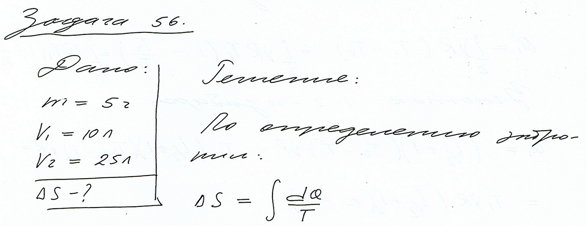 Задача 56.
Дано:
m = 5 г
V₁ = 10 л
V₂ = 25 л
ΔS - ?
Решение:
По определению энтро-
пии:
ΔS = ∫ dQ/T